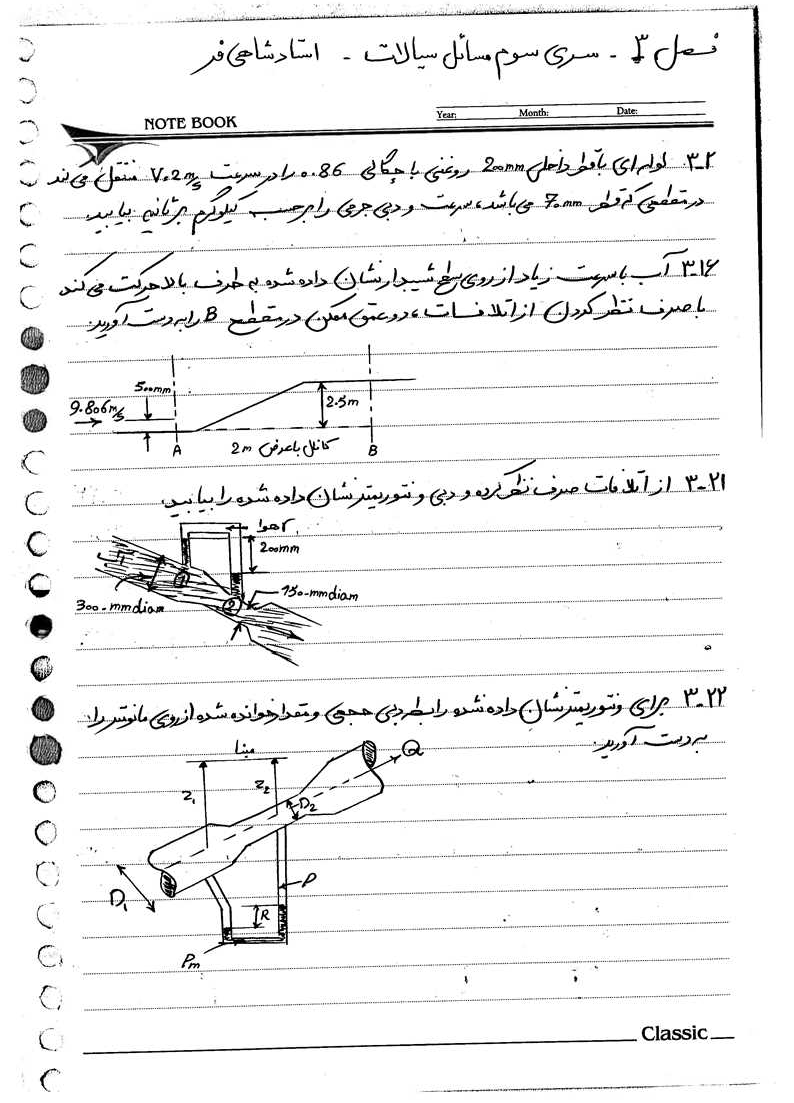 فصل ۳ - سری سوم مسائل سیالات - استاد شاهی فر
NOTE BOOK
Year: Month: Date:
۳-۲ لوله ای با قطر داخلی 200mm روغنی با چگالی 0.86 را در سرعت V=2m/s منتقل می کند
در مقطعی که قطر 70mm می باشد، سرعت و دبی جرمی را برحسب کیلوگرم بر ثانیه بیابید.
۳-۱۶ آب با سرعت زیاد از روی سطح شیبدار نشان داده شده به طرف بالا حرکت می کند
با صرف نظر کردن از اتلافات، دو عمق ممکن در مقطع B را به دست آورید.
500mm
9.806m/s
2.5m
A
کانال با عرض 2m
B
۳-۲۱ از اتلافات صرف نظر کرده و دبی ونتوریمتر نشان داده شده را بیابید.
هوا
200mm
1
2
300-mm diam
150-mm diam
۳-۲۲ برای ونتوریمتر نشان داده شده رابطه دبی حجمی و مقدار خوانده شده از روی مانومتر را
به دست آورید.
مبنا
Q
Z1
Z2
D2
D1
ρ
R
ρm
Classic